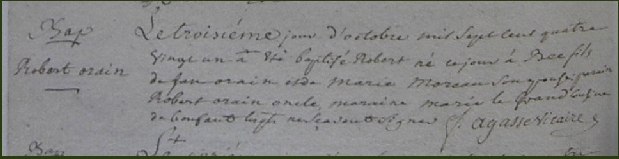 Bap
Robert orain
Le troisiéme jour d'octobre mil Sept cens quatre
vingt un à été baptisé Robert né ce jour à Bee fils
de feu orain et de Marie Moreau Son epouse parein
Robert orain oncle, maraine marie le grand
de l'enfant ne Scavent Signer J. agasse Vicaire
Bap